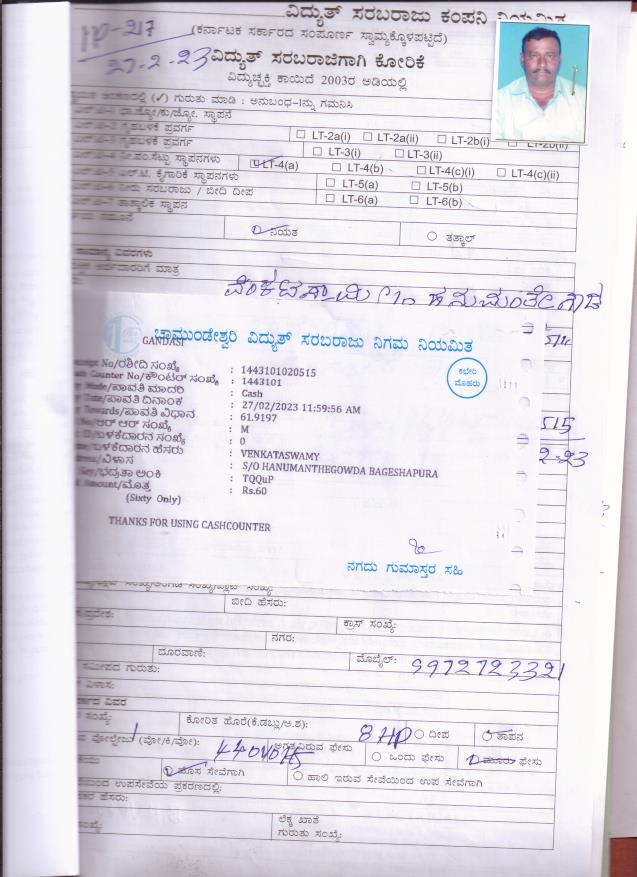 ವಿದ್ಯುತ್ ಸರಬರಾಜು ಕಂಪನಿ ನಿಯಮಿತ
pp-217
(ಕರ್ನಾಟಕ ಸರ್ಕಾರದ ಸಂಪೂರ್ಣ ಸ್ವಾಮ್ಯಕ್ಕೊಳಪಟ್ಟಿದೆ)
27-2-23
ವಿದ್ಯುತ್ ಸರಬರಾಜಿಗಾಗಿ ಕೋರಿಕೆ
ವಿದ್ಯುಚ್ಛಕ್ತಿ ಕಾಯಿದೆ 2003ರ ಅಡಿಯಲ್ಲಿ
(✓) ಗುರುತು ಮಾಡಿ : ಅನುಬಂಧ-Iನ್ನು ಗಮನಿಸಿ
ಸ್ಥಾಪನೆ
ಗೃಹಬಳಕೆ ಪ್ರವರ್ಗ ☐ LT-2a(i) ☐ LT-2a(ii) ☐ LT-2b(i) ☐ LT-2b(ii)
ಗೃಹಬಳಕೆ ಪ್ರವರ್ಗ ☐ LT-3(i) ☐ LT-3(ii)
ನೀ.ಪಂ.ಸೆಟ್ಟು ಸ್ಥಾಪನಗಳು LT-4(a) ☐ LT-4(b) ☐ LT-4(c)(i) ☐ LT-4(c)(ii)
ಎಲ್.ಟಿ. ಕೈಗಾರಿಕೆ ಸ್ಥಾಪನಗಳು ☐ LT-5(a) ☐ LT-5(b)
ನೀರು ಸರಬರಾಜು / ಬೀದಿ ದೀಪ ☐ LT-6(a) ☐ LT-6(b)
ತಾತ್ಕಾಲಿಕ ಸ್ಥಾಪನ
ನಿಯತ ○ ತತ್ಕಾಲ್
ವಿವರಗಳು
ಮಾತ್ರ
ವೆಂಕಟಸ್ವಾಮಿ S/o ಹನುಮಂತೇಗೌಡ
ಚಾಮುಂಡೇಶ್ವರಿ ವಿದ್ಯುತ್ ಸರಬರಾಜು ನಿಗಮ ನಿಯಮಿತ
GANDASI
ಕಛೇರಿ
ಮೊಹರು
No/ರಶೀದಿ ಸಂಖ್ಯೆ : 1443101020515
Counter No/ಕೌಂಟರ್ ಸಂಖ್ಯೆ : 1443101
Mode/ಪಾವತಿ ಮಾದರಿ : Cash
Date/ಪಾವತಿ ದಿನಾಂಕ : 27/02/2023 11:59:56 AM
Towards/ಪಾವತಿ ವಿಧಾನ : 61.9197
No/ಆರ್ ಆರ್ ಸಂಖ್ಯೆ : M
ID/ಬಳಕೆದಾರನ ಸಂಖ್ಯೆ : 0
ಬಳಕೆದಾರನ ಹೆಸರು : VENKATASWAMY
/ವಿಳಾಸ : S/O HANUMANTHEGOWDA BAGESHAPURA
Key/ಭದ್ರತಾ ಅಂಕಿ : TQQuP
Amount/ಮೊತ್ತ : Rs.60
(Sixty Only)
515
2-23
THANKS FOR USING CASHCOUNTER
ನಗದು ಗುಮಾಸ್ತರ ಸಹಿ
ಬೀದಿ ಹೆಸರು:
ಕ್ರಾಸ್ ಸಂಖ್ಯೆ:
ನಗರ:
ದೂರವಾಣಿ: ಮೊಬೈಲ್: 9972723321
ಸಮೀಪದ ಗುರುತು:
ವಿಳಾಸ:
ವಿವರ
ಸಂಖ್ಯೆ: ಕೋರಿತ ಹೊರೆ(ಕೆ.ಡಬ್ಲು/ಅ.ಶ): 8 HP ○ ದೀಪ ತಾಪನ
ವೋಲ್ಟೇಜು (ವೋ/ಕಿ/ವೋ): 440volts ಅಗತ್ಯವಿರುವ ಫೇಸು ○ ಒಂದು ಫೇಸು ಮೂರು ಫೇಸು
ಹೊಸ ಸೇವೆಗಾಗಿ ○ ಹಾಲಿ ಇರುವ ಸೇವೆಯಿಂದ ಉಪ ಸೇವೆಗಾಗಿ
ಉಪಸೇವೆಯ ಪ್ರಕರಣದಲ್ಲಿ:
ಹೆಸರು:
ಸಂಖ್ಯೆ: ಲೆಕ್ಕ ಖಾತೆ
ಗುರುತು ಸಂಖ್ಯೆ: